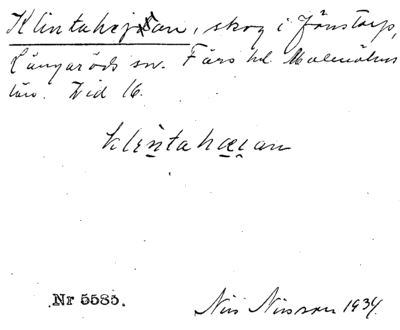 Klintahejan, skog i Jönstorp,
Långaröds sn. Färs hd. Malmöhus
län. Vid 16.
klintahæi̯an
Nr 5585.
Nils Nilsson 1934.